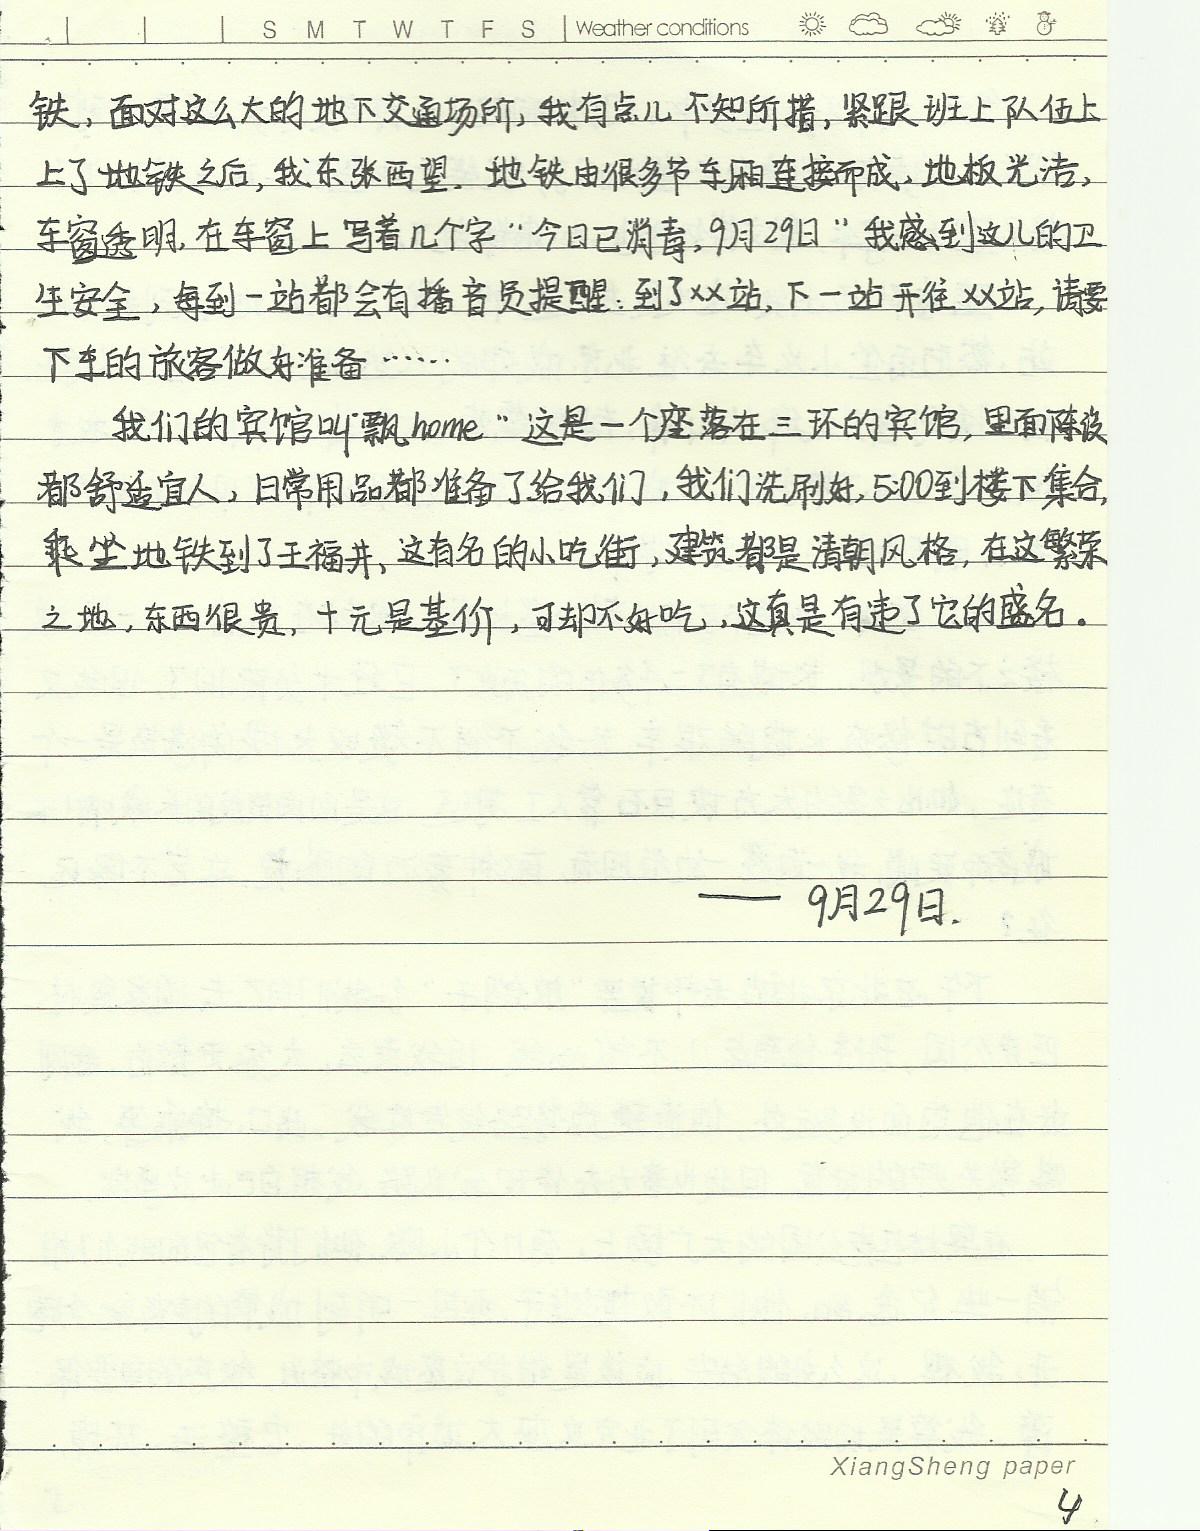 S M T W T F S Weather conditions
铁，面对这么大的地下交通场所，我有点儿不知所措，紧跟班上队伍上
上了地铁之后，我东张西望，地铁由很多节车厢连接而成，地板光洁，
车窗透明，在车窗上写着几个字“今日已消毒，9月29日”我感到这儿的卫
生安全，每到一站都会有播音员提醒：到了××站，下一站开往××站，请要
下车的旅客做好准备……
我们的宾馆叫“飘home”这是一个座落在三环的宾馆，里面陈设
都舒适宜人，日常用品都准备了给我们，我们洗刷好，5:00到楼下集合，
乘坐地铁到了王福井，这有名的小吃街，建筑都是清朝风格，在这繁荣
之地，东西很贵，十元是基价，可却不好吃，这真是有违了它的盛名．
—— 9月29日．
XiangSheng paper
4